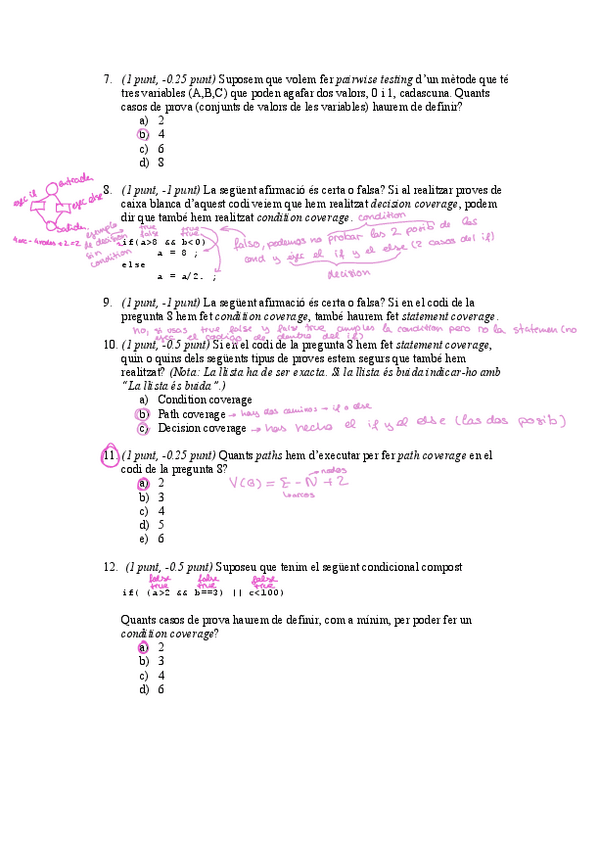 7. (1 punt, -0.25 punt) Suposem que volem fer pairwise testing d'un mètode que té
tres variables (A,B,C) que poden agafar dos valors, 0 i 1, cadascuna. Quants
casos de prova (conjunts de valors de les variables) haurem de definir?
a) 2
b) 4
c) 6
d) 8
entrada
exec if
exec else
salida
4 arc - 4 nodes + 2 = 2
8. (1 punt, -1 punt) La següent afirmació és certa o falsa? Si al realitzar proves de
caixa blanca d'aquest codi veiem que hem realitzat decision coverage, podem
dir que també hem realitzat condition coverage. condition
ejemplo de decision sin condition
true true
false true
if(a>8 && b<0)
a = 8 ;
else
a = a/2. ;
falso, podemos no probar las 2 posib de las
cond y ejec el if y el else (2 casos del if)
decision
9. (1 punt, -1 punt) La següent afirmació és certa o falsa? Si en el codi de la
pregunta 8 hem fet condition coverage, també haurem fet statement coverage.
no, si usas true false y false true cumples la condition pero no la statement (no
ejec el codigo de dentro del if)
10. (1 punt, -0.5 punt) Si en el codi de la pregunta 8 hem fet statement coverage,
quin o quins dels següents tipus de proves estem segurs que també hem
realitzat? (Nota: La llista ha de ser exacta. Si la llista és buida indicar-ho amb
"La llista és buida".)
a) Condition coverage
b) Path coverage → hay dos caminos → if o else
c) Decision coverage → has hecho el if y el else (las dos posib)
11. (1 punt, -0.25 punt) Quants paths hem d'executar per fer path coverage en el
codi de la pregunta 8?
a) 2
b) 3
c) 4
d) 5
e) 6
→ nodos
V(G) = E - N + 2
↳ arcos
12. (1 punt, -0.5 punt) Suposeu que tenim el següent condicional compost
false false false
true true true
if( (a>2 && b==3) || c<100)
Quants casos de prova haurem de definir, com a mínim, per poder fer un
condition coverage?
a) 2
b) 3
c) 4
d) 6